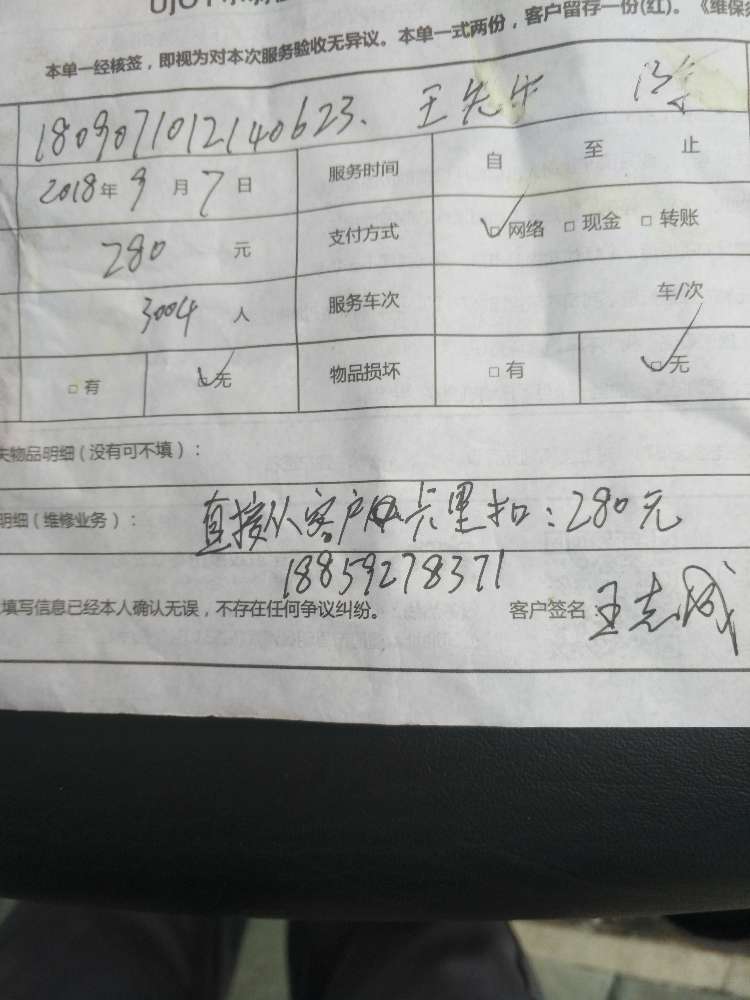 本单一经核签，即视为对本次服务验收无异议。本单一式两份，客户留存一份(红)。《维保
1809071012140623、 王先生
2018年9月7日 服务时间 自 至 止
280 元 支付方式 □网络 □现金 □转账
3004 人 服务车次 车/次
□有 □无 物品损坏 □有 □无
失物品明细（没有可不填）：
明细（维修业务）： 直接从客户卡里扣：280元
18859278371
填写信息已经本人确认无误，不存在任何争议纠纷。 客户签名 王志成